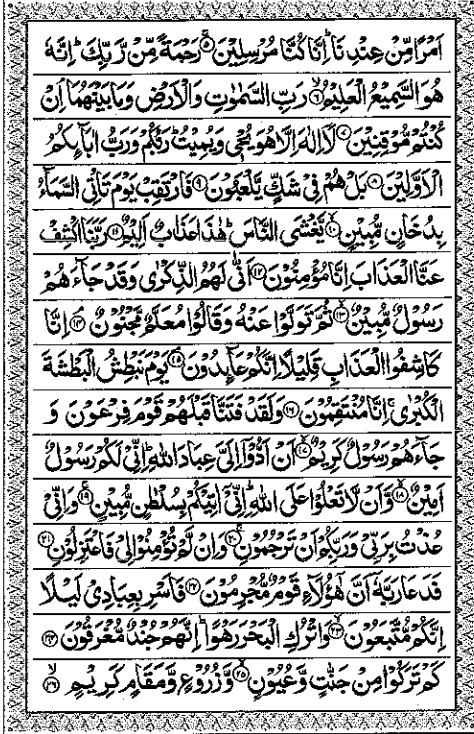 اَمْرًا مِّنْ عِنْدِنَا ؕ اِنَّا كُنَّا مُرْسِلِيْنَ ۚ﴿۵﴾ رَحْمَةً مِّنْ رَّبِّكَ ؕ اِنَّهٗ
هُوَ السَّمِيْعُ الْعَلِيْمُ ۙ﴿۶﴾ رَبِّ السَّمٰوٰتِ وَالْاَرْضِ وَمَا بَيْنَهُمَا ۘ اِنْ
كُنْتُمْ مُّوْقِنِيْنَ ﴿۷﴾ لَاۤ اِلٰهَ اِلَّا هُوَ يُحْيٖ وَيُمِيْتُ ؕ رَبُّكُمْ وَرَبُّ اٰبَآئِكُمُ
الْاَوَّلِيْنَ ﴿۸﴾ بَلْ هُمْ فِيْ شَكٍّ يَّلْعَبُوْنَ ﴿۹﴾ فَارْتَقِبْ يَوْمَ تَاْتِي السَّمَآءُ
بِدُخَانٍ مُّبِيْنٍ ۙ﴿۱۰﴾ يَّغْشَى النَّاسَ ؕ هٰذَا عَذَابٌ اَلِيْمٌ ﴿۱۱﴾ رَبَّنَا اكْشِفْ
عَنَّا الْعَذَابَ اِنَّا مُؤْمِنُوْنَ ﴿۱۲﴾ اَنّٰى لَهُمُ الذِّكْرٰى وَقَدْ جَآءَهُمْ
رَسُوْلٌ مُّبِيْنٌ ۙ﴿۱۳﴾ ثُمَّ تَوَلَّوْا عَنْهُ وَقَالُوْا مُعَلَّمٌ مَّجْنُوْنٌ ۘ﴿۱۴﴾ اِنَّا
كَاشِفُوا الْعَذَابِ قَلِيْلًا اِنَّكُمْ عَآئِدُوْنَ ۘ﴿۱۵﴾ يَوْمَ نَبْطِشُ الْبَطْشَةَ
الْكُبْرٰى ۚ اِنَّا مُنْتَقِمُوْنَ ﴿۱۶﴾ وَلَقَدْ فَتَنَّا قَبْلَهُمْ قَوْمَ فِرْعَوْنَ وَ
جَآءَهُمْ رَسُوْلٌ كَرِيْمٌ ۙ﴿۱۷﴾ اَنْ اَدُّوْۤا اِلَيَّ عِبَادَ اللّٰهِ ؕ اِنِّيْ لَكُمْ رَسُوْلٌ
اَمِيْنٌ ۙ﴿۱۸﴾ وَّاَنْ لَّا تَعْلُوْا عَلَى اللّٰهِ ؕ اِنِّيْۤ اٰتِيْكُمْ بِسُلْطٰنٍ مُّبِيْنٍ ۚ﴿۱۹﴾ وَاِنِّيْ
عُذْتُ بِرَبِّيْ وَرَبِّكُمْ اَنْ تَرْجُمُوْنِ ۚ﴿۲۰﴾ وَاِنْ لَّمْ تُؤْمِنُوْا لِيْ فَاعْتَزِلُوْنِ ﴿۲۱﴾
فَدَعَا رَبَّهٗۤ اَنَّ هٰۤؤُلَآءِ قَوْمٌ مُّجْرِمُوْنَ ﴿۲۲﴾ فَاَسْرِ بِعِبَادِيْ لَيْلًا
اِنَّكُمْ مُّتَّبَعُوْنَ ۙ﴿۲۳﴾ وَاتْرُكِ الْبَحْرَ رَهْوًا ؕ اِنَّهُمْ جُنْدٌ مُّغْرَقُوْنَ ﴿۲۴﴾
كَمْ تَرَكُوْا مِنْ جَنّٰتٍ وَّعُيُوْنٍ ۙ﴿۲۵﴾ وَّزُرُوْعٍ وَّمَقَامٍ كَرِيْمٍ ۙ﴿۲۶﴾